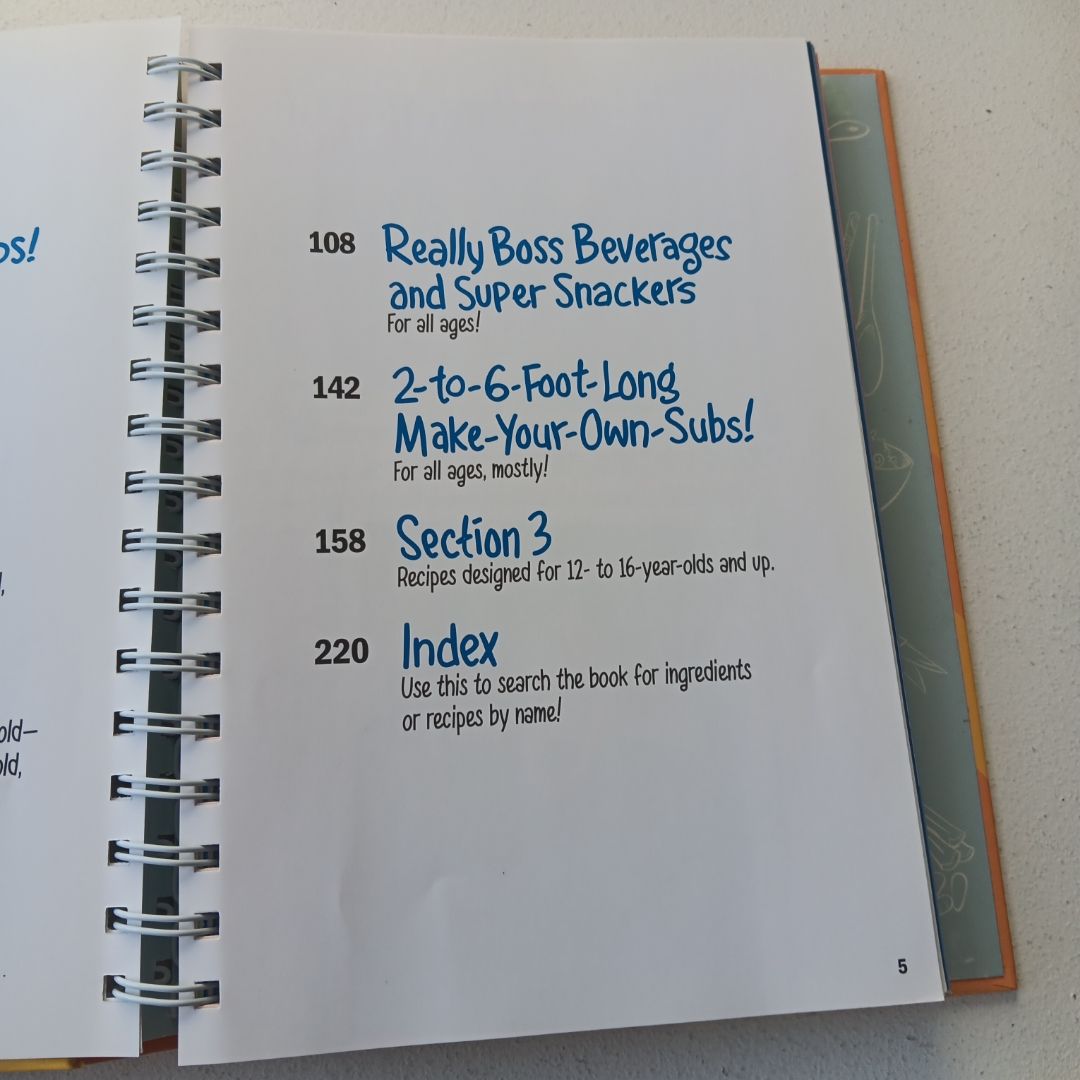 os!
old—
old,
108 Really Boss Beverages
and Super Snackers
For all ages!
142 2-to-6-Foot-Long
Make-Your-Own-Subs!
For all ages, mostly!
158 Section 3
Recipes designed for 12- to 16-year-olds and up.
220 Index
Use this to search the book for ingredients
or recipes by name!
5